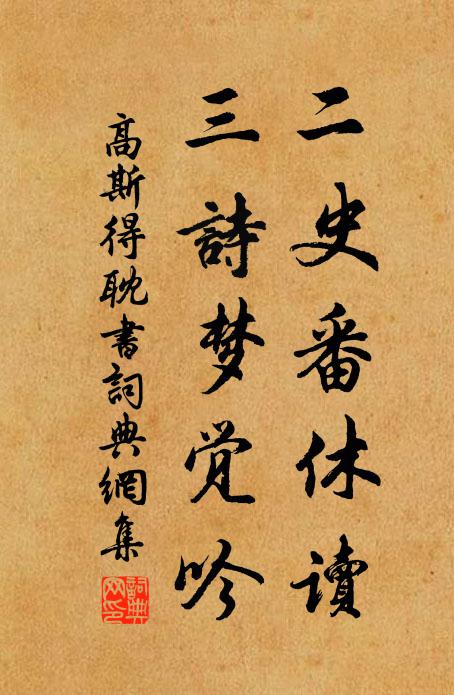 二史番休讀
三詩梦觉吟
高斯得耽書詞典網集
詞典网印